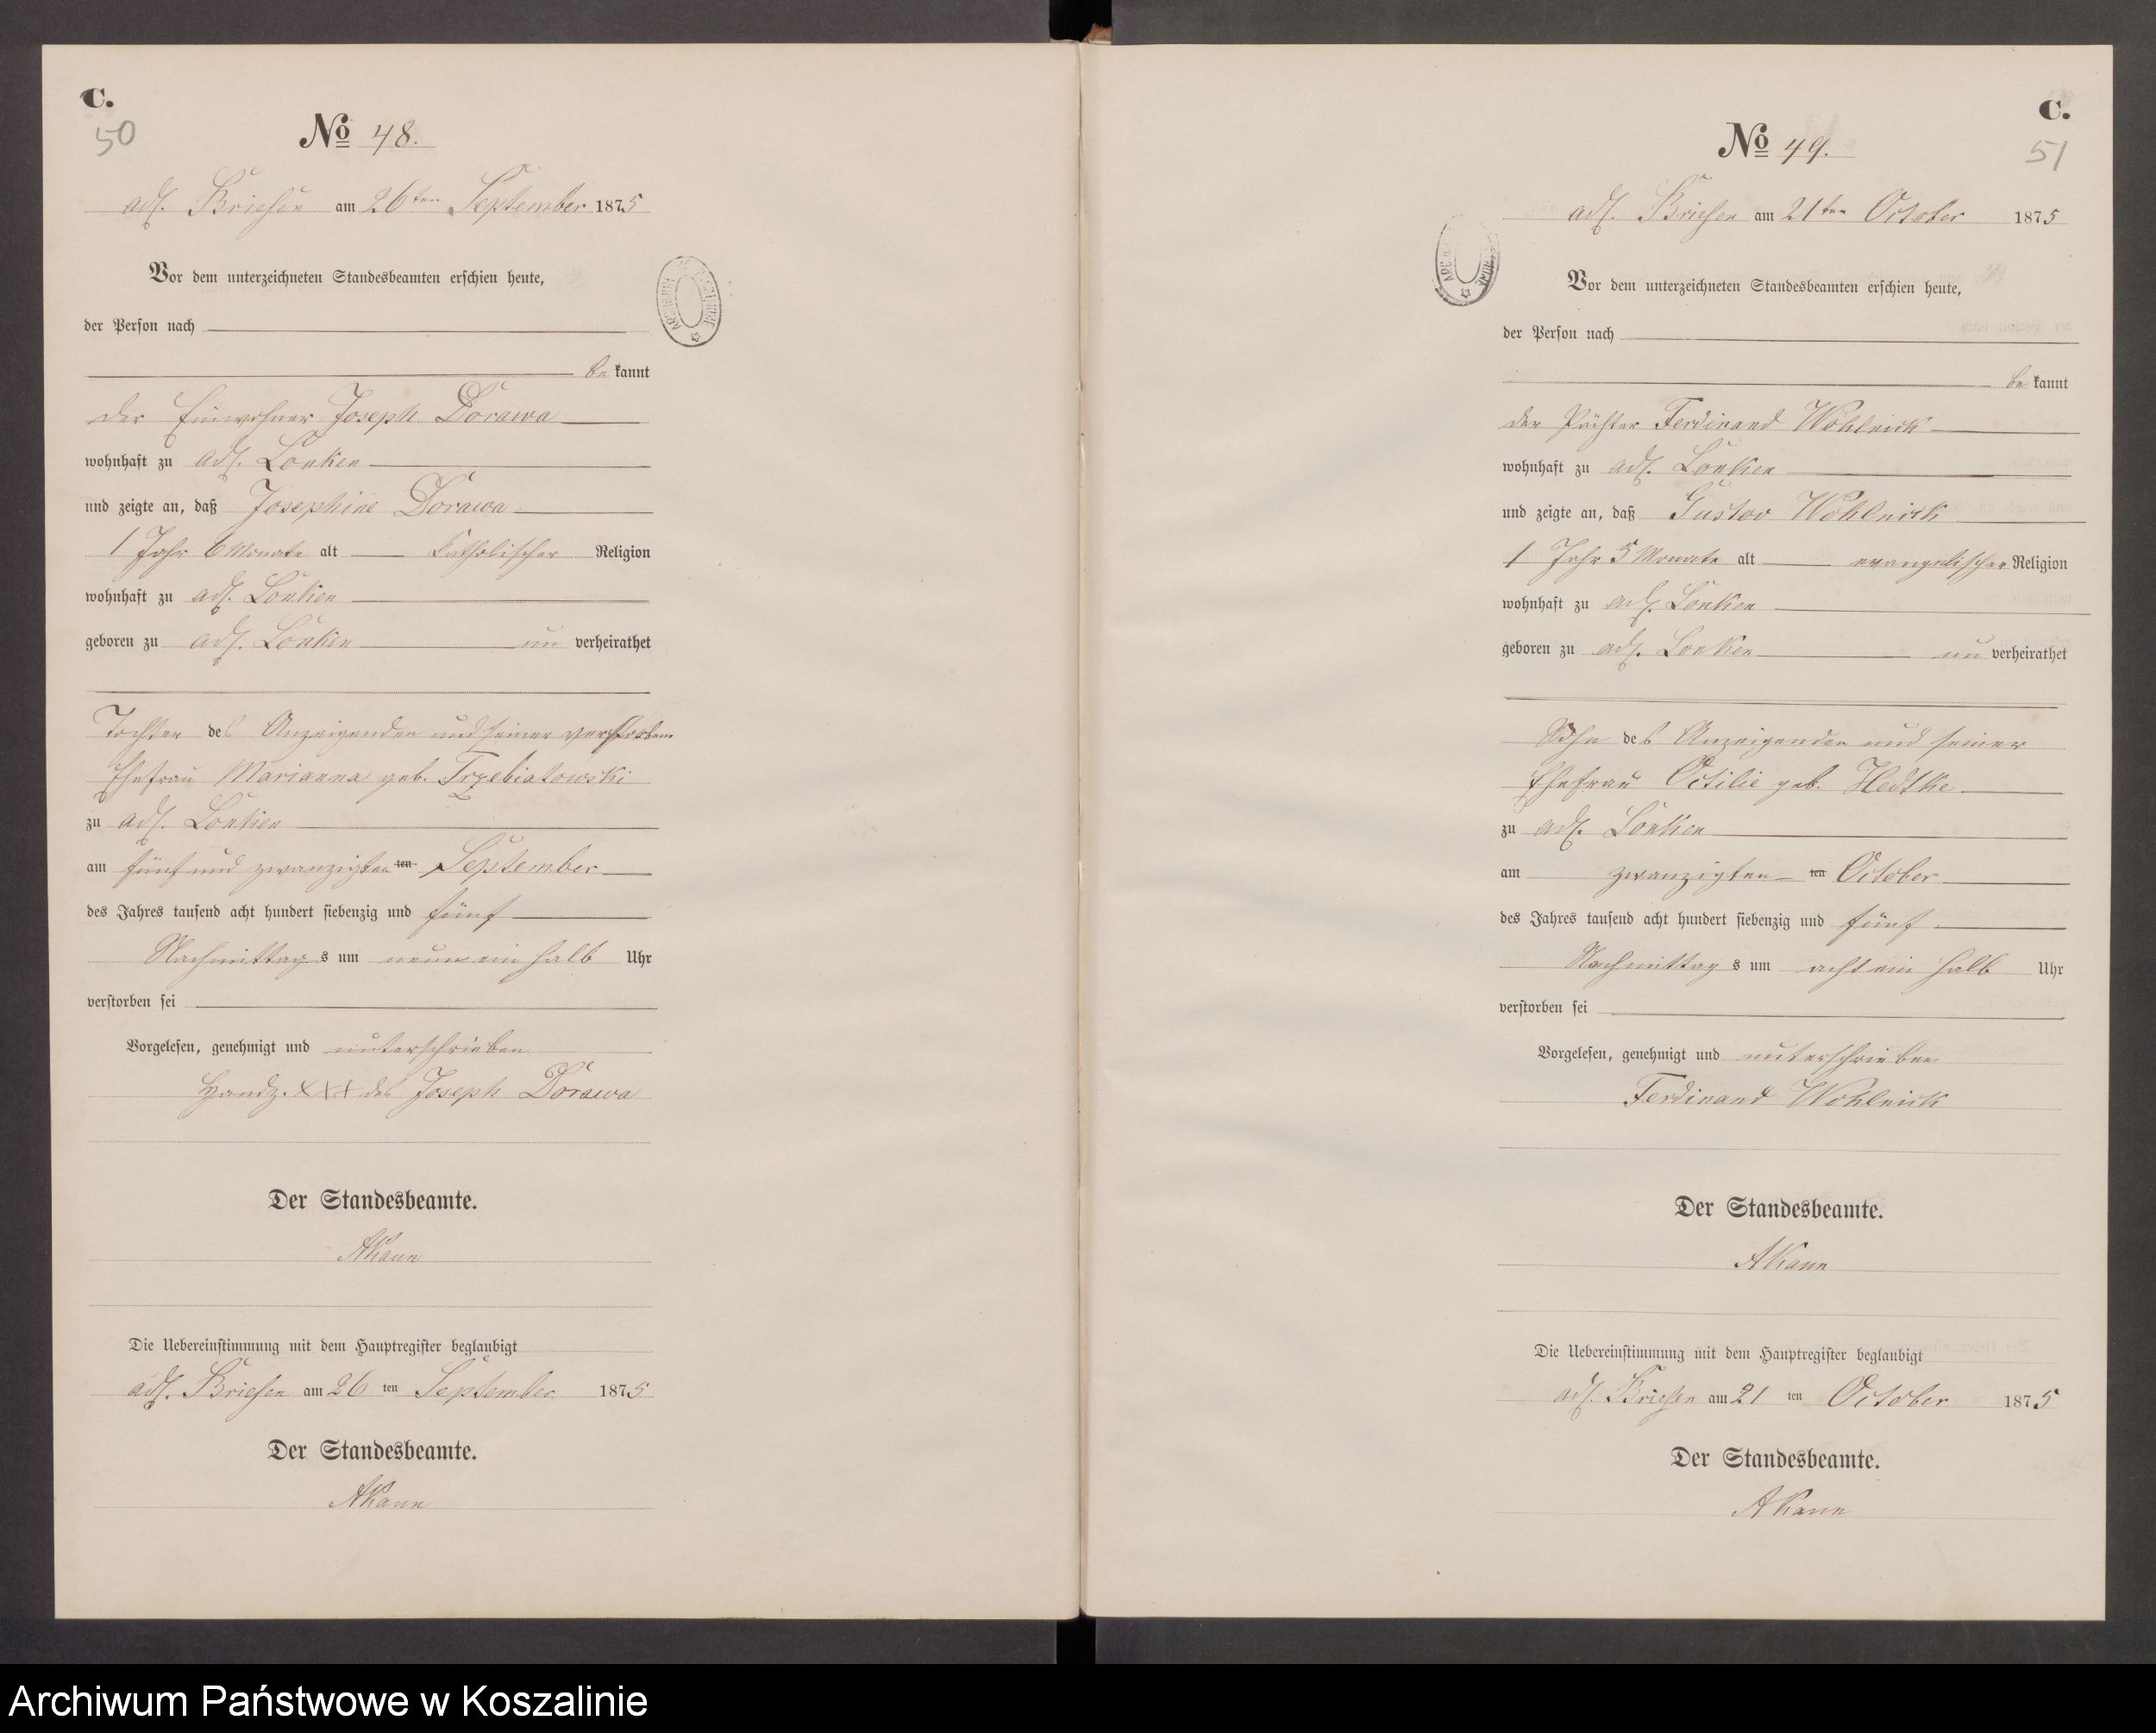 C.
50
No 48.
adl. Briesen am 26ten September 1875
Vor dem unterzeichneten Standesbeamten erschien heute,
der Person nach
be kannt
der Einwohner Joseph Dorawa
wohnhaft zu adl. Lonken
und zeigte an, daß Josephine Dorawa
1 Jahr 6 Monate alt katholischer Religion
wohnhaft zu adl. Lonken
geboren zu adl. Lonken un verheirathet
Tochter des Anzeigenden und seiner verstorbenen
Ehefrau Marianna geb. Trzebiatowski
zu adl. Lonken
am fünf und zwanzigsten ten September
des Jahres tausend acht hundert siebenzig und fünf
Nachmittags um neun ein halb Uhr
verstorben sei
Vorgelesen, genehmigt und unterschrieben
Handz. XXX des Joseph Dorawa
Der Standesbeamte.
AKann
Die Uebereinstimmung mit dem Hauptregister beglaubigt
adl. Briesen am 26 ten September 1875
Der Standesbeamte.
AKann
C.
51
No 49.
adl. Briesen am 21ten October 1875
Vor dem unterzeichneten Standesbeamten erschien heute,
der Person nach
be kannt
der Pächter Ferdinand Wohlnick
wohnhaft zu adl. Lonken
und zeigte an, daß Gustav Wohlnick
1 Jahr 5 Monate alt evangelischer Religion
wohnhaft zu adl. Lonken
geboren zu adl. Lonken un verheirathet
Sohn des Anzeigenden und seiner
Ehefrau Ottilie geb. Hedtke
zu adl. Lonken
am zwanzigten ten October
des Jahres tausend acht hundert siebenzig und fünf
Nachmittags um acht ein halb Uhr
verstorben sei
Vorgelesen, genehmigt und unterschrieben
Ferdinand Wohlnick
Der Standesbeamte.
AKann
Die Uebereinstimmung mit dem Hauptregister beglaubigt
adl. Briesen am 21 ten October 1875
Der Standesbeamte.
AKann
Archiwum Państwowe w Koszalinie